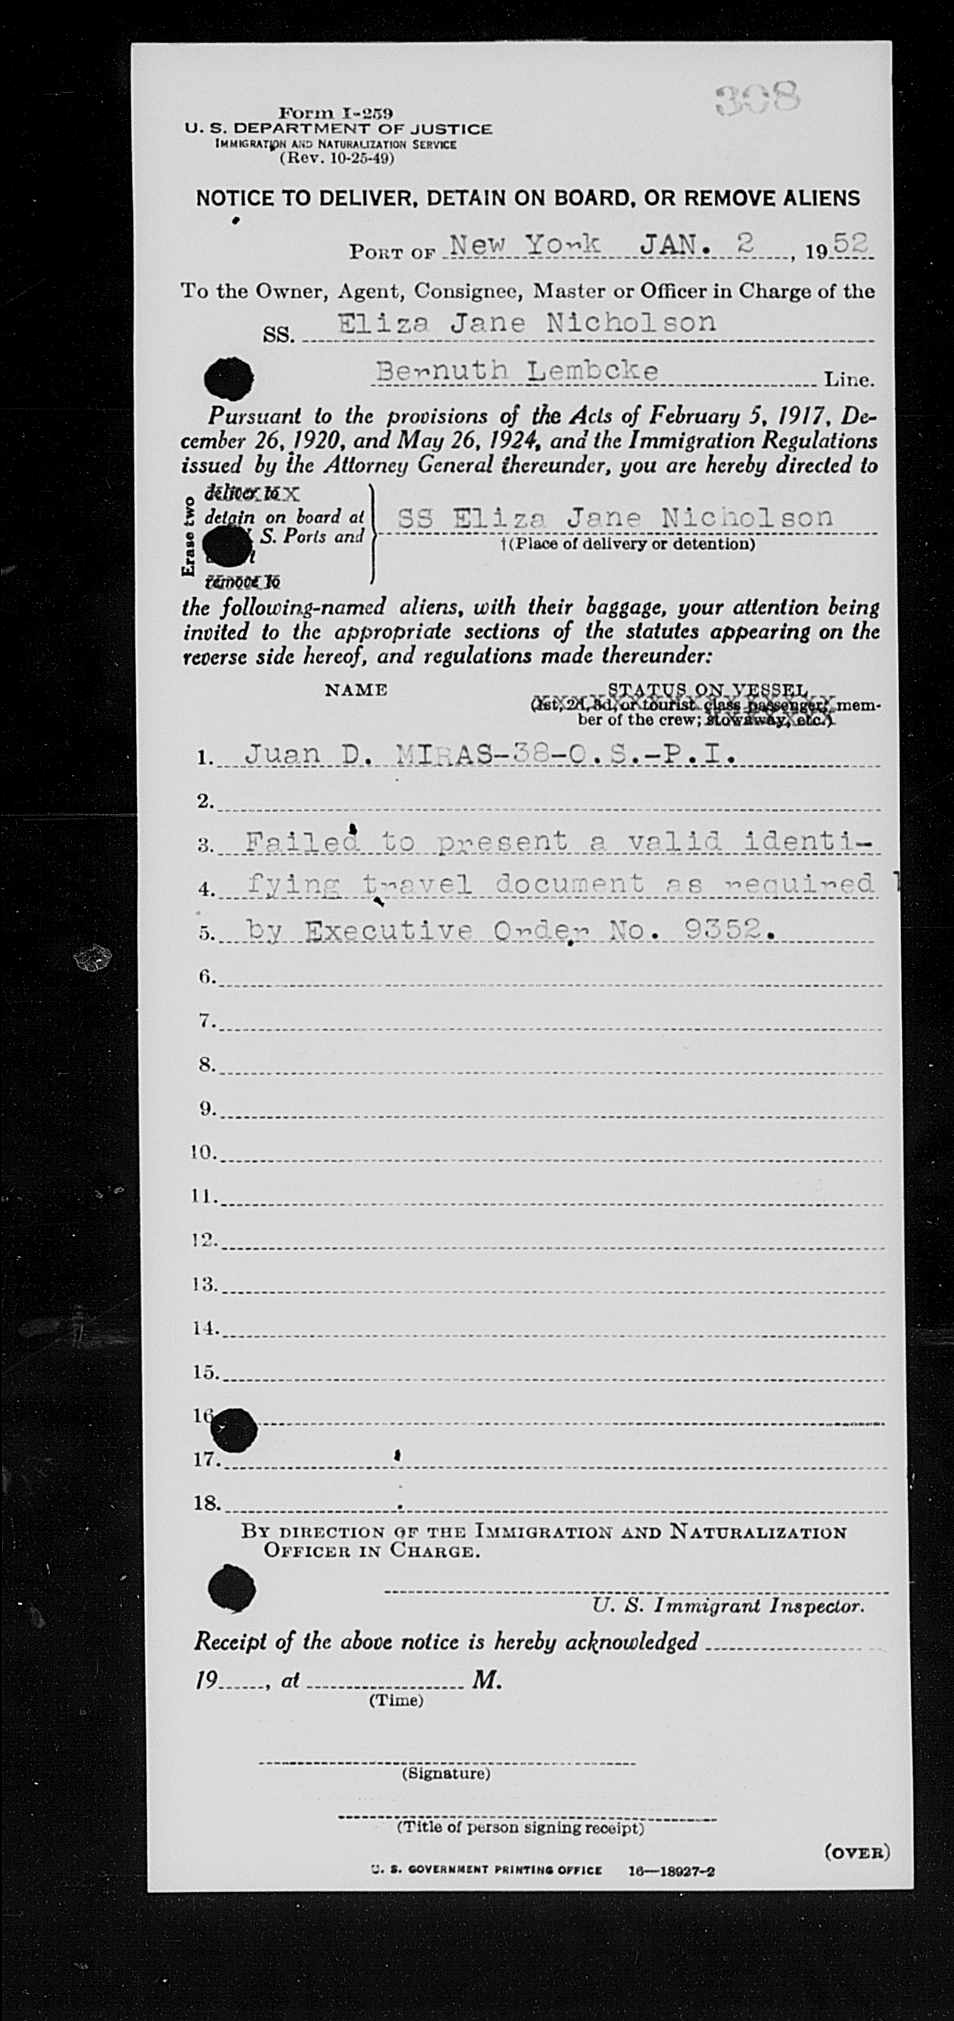 308
Form I-259
U. S. DEPARTMENT OF JUSTICE
IMMIGRATION AND NATURALIZATION SERVICE
(Rev. 10-25-49)
NOTICE TO DELIVER, DETAIN ON BOARD, OR REMOVE ALIENS
PORT OF New York JAN. 2, 1952
To the Owner, Agent, Consignee, Master or Officer in Charge of the
SS. Eliza Jane Nicholson
Bernuth Lembcke Line.
Pursuant to the provisions of the Acts of February 5, 1917, De-
cember 26, 1920, and May 26, 1924, and the Immigration Regulations
issued by the Attorney General thereunder, you are hereby directed to
Erase two
deliver to
detain on board at
S. Ports and
remove to
SS Eliza Jane Nicholson
†(Place of delivery or detention)
the following-named aliens, with their baggage, your attention being
invited to the appropriate sections of the statutes appearing on the
reverse side hereof, and regulations made thereunder:
NAME STATUS ON VESSEL
(1st, 2d, 3d, or tourist class passenger, mem-
ber of the crew; stowaway, etc.)
1. Juan D. MIRAS-38-O.S.-P.I.
2.
3. Failed to present a valid identi-
4. fying travel document as required
5. by Executive Order No. 9352.
6.
7.
8.
9.
10.
11.
12.
13.
14.
15.
16
17.
18.
BY DIRECTION OF THE IMMIGRATION AND NATURALIZATION
OFFICER IN CHARGE.
U. S. Immigrant Inspector.
Receipt of the above notice is hereby acknowledged
19......, at .................... M.
(Time)
(Signature)
(Title of person signing receipt)
(OVER)
U. S. GOVERNMENT PRINTING OFFICE 16—18927-2